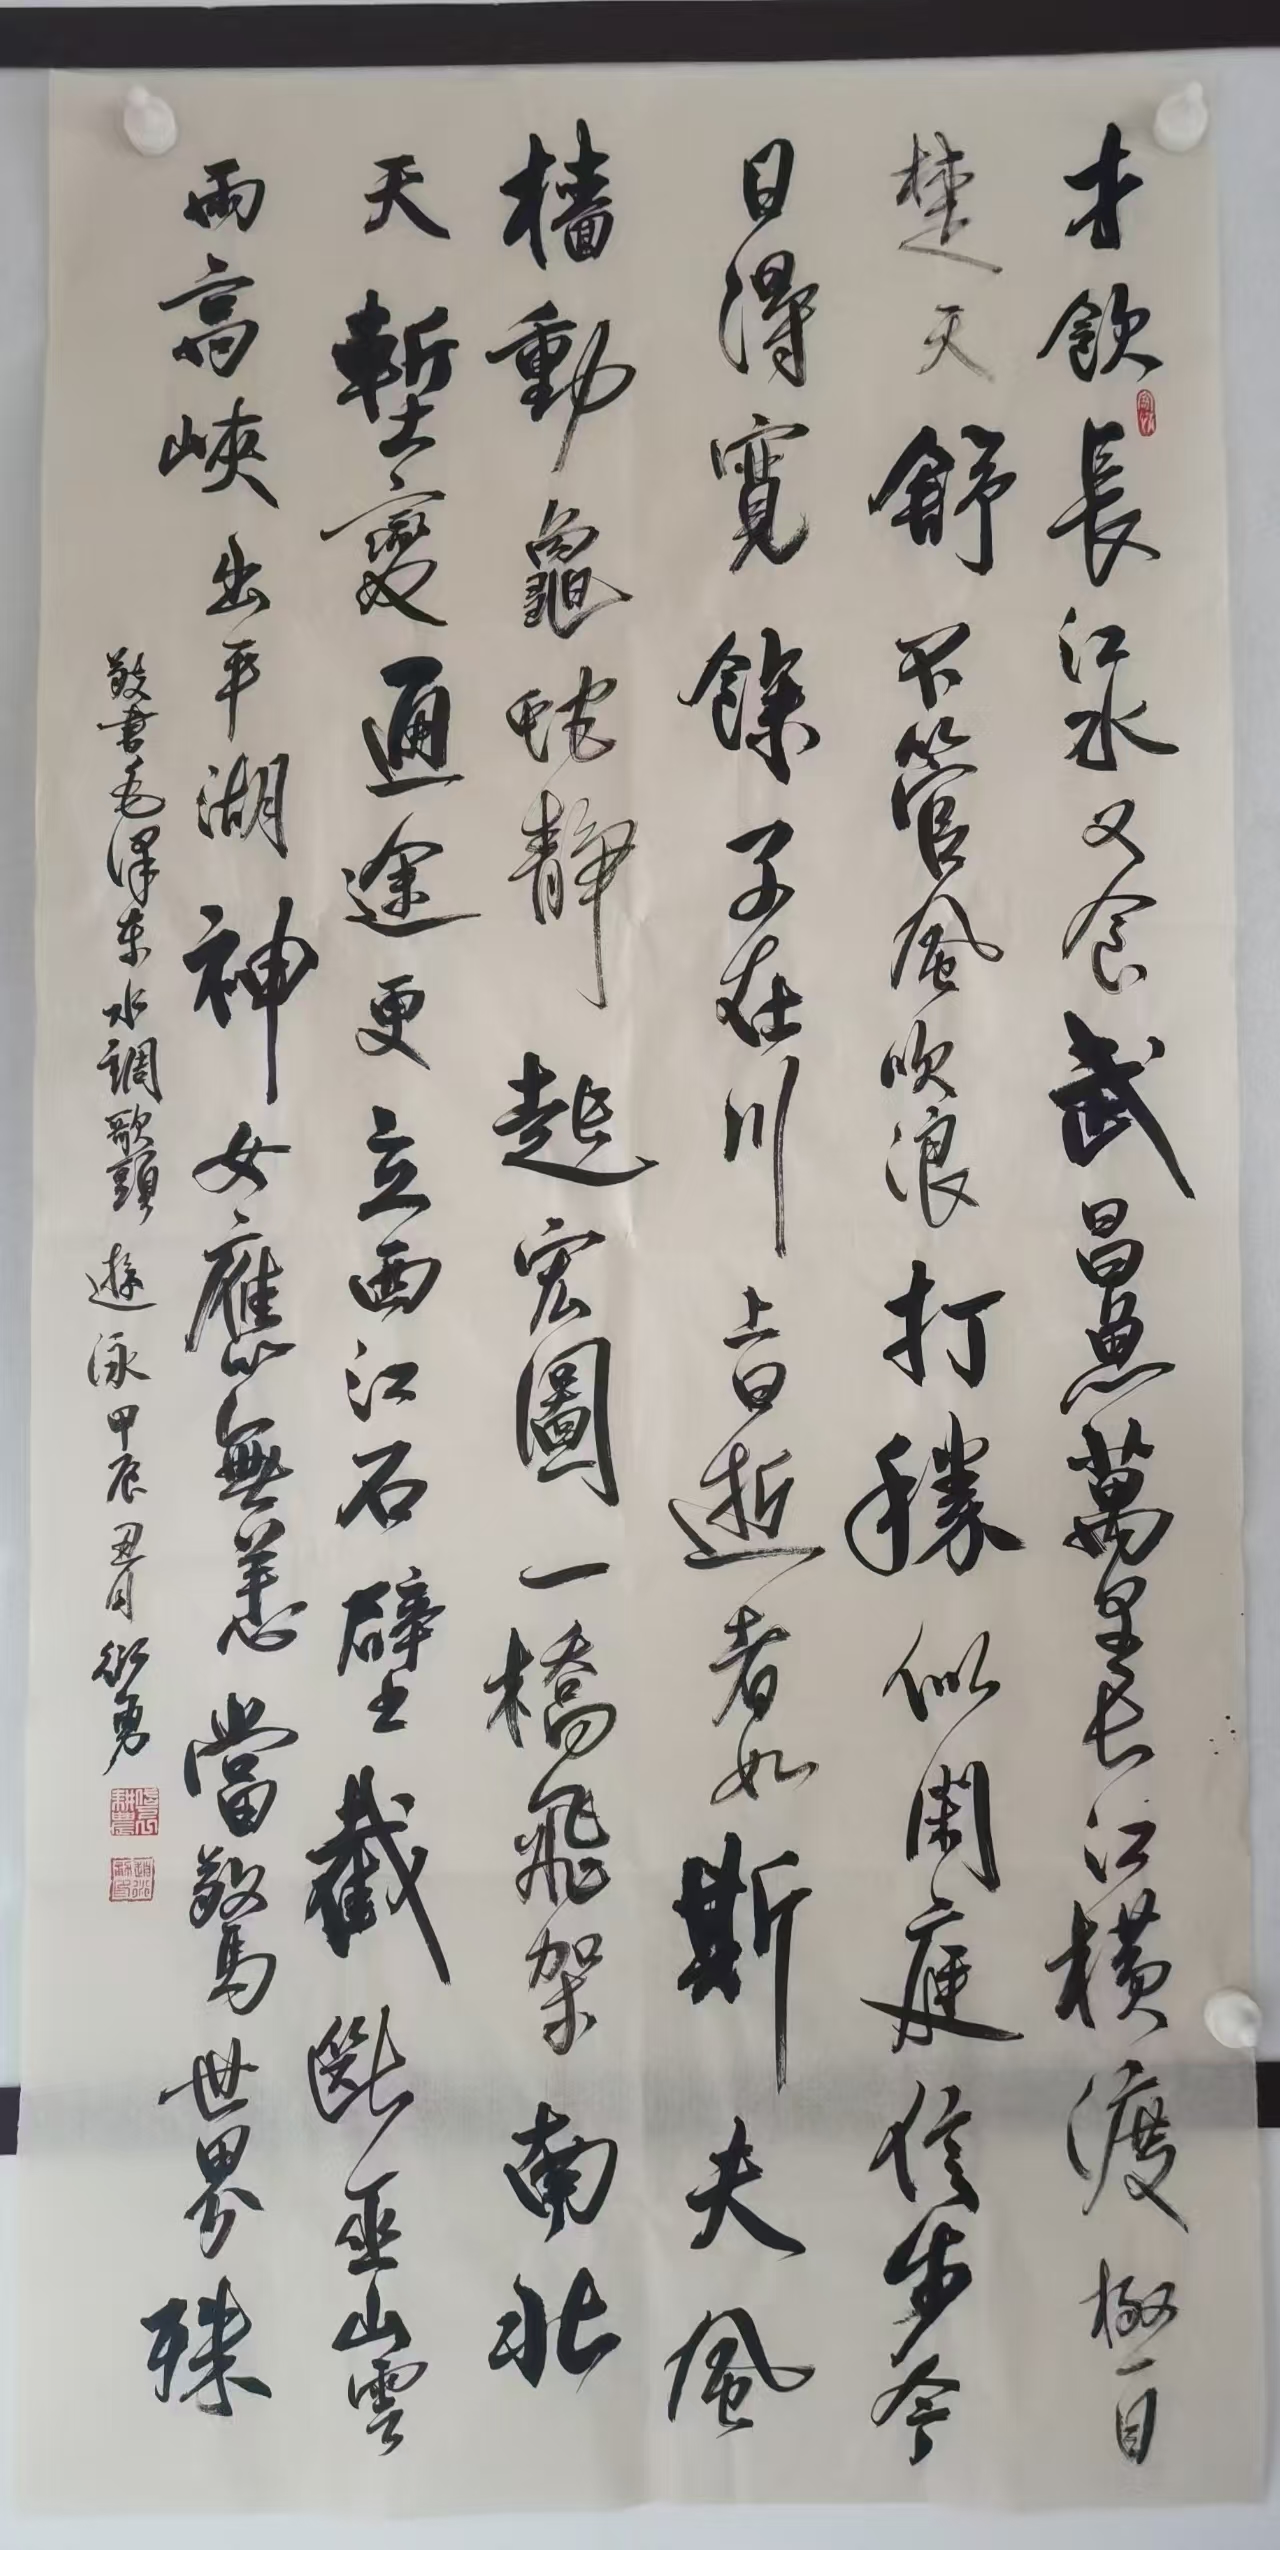 才飲長江水又食武昌魚萬里長江橫渡極目
楚天舒不管風吹浪打勝似閑庭信步今
日得寬餘子在川上曰逝者如斯夫風
檣動龜蛇靜起宏圖一橋飛架南北
天塹變通途更立西江石壁截斷巫山雲
雨高峽出平湖神女應無恙當驚世界殊
敬書毛澤東水調歌頭遊泳甲辰丑月衍勇